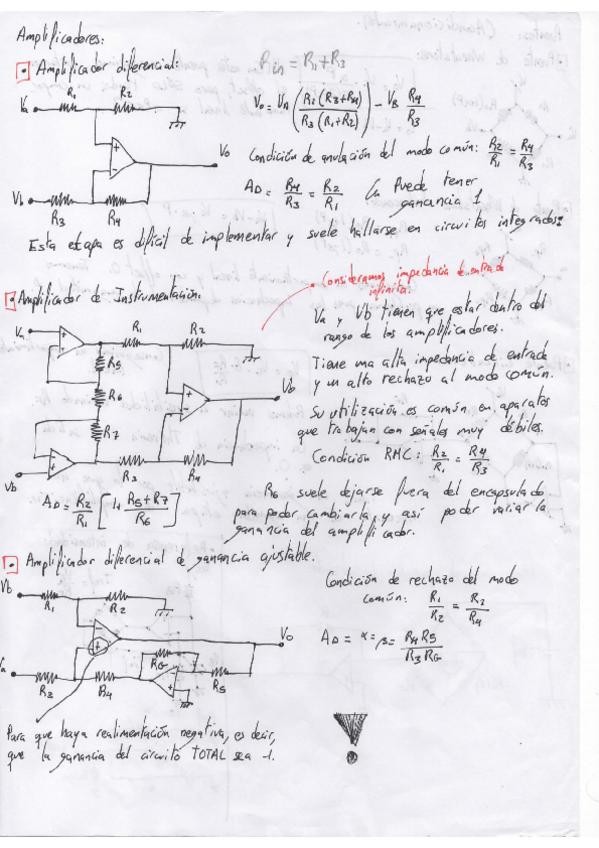 Amplificadores:
• Amplificador diferencial:
Rin = R1 + R3
Va R1 R2
Vo = VA (R2 (R3+R4) / R3 (R1+R2)) - VB R4/R3
Vo
Condición de anulación del modo común: R2/R1 = R4/R3
Vb R3 R4
AD = R4/R3 = R2/R1 Puede tener
ganancia 1
Esta etapa es difícil de implementar y suele hallarse en circuitos integrados.
• Consideramos impedancia de entrada
infinita.
• Amplificador de Instrumentación:
Va y Vb tienen que estar dentro del
rango de los amplificadores.
Va R1 R2
R5
R6
R7
Vo
Vb R3 R4
Tiene una alta impedancia de entrada
y un alto rechazo al modo común.
Su utilización es común en aparatos
que trabajan con señales muy débiles.
Condición RMC: R2/R1 = R4/R3
AD = R2/R1 [1+ R5+R7/R6]
R6 suele dejarse fuera del encapsulado
para poder cambiarla, y así poder variar la
ganancia del amplificador.
• Amplificador diferencial de ganancia ajustable.
Vb R1 R2
Vo
Va R3 R4 RG R5
Condición de rechazo del modo
común: R1/R2 = R3/R4
AD = α = β = R4 R5/R3 RG
Para que haya realimentación negativa, es decir,
que la ganancia del circuito TOTAL sea -1.